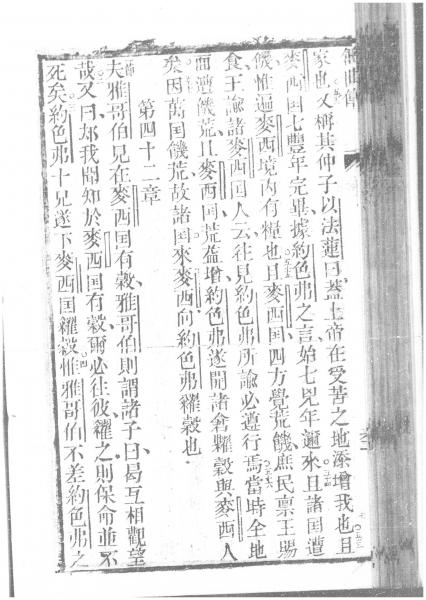 家也又稱其仲子以法蓮曰蓋上帝在受苦之地添增我也且
麥西国七豐年完畢據約色弗之言始七兇年邇來且諸国遭
饑惟遍麥西境內有糧也且麥西国四方覺荒饑庶民禀王賜
食王諭諸麥西国人云往見約色弗所諭必遵行焉當時全地
面遭饑荒且麥西国荒益增約色弗遂開諸倉糶穀與麥西人
矣因萬国饑荒故諸国來麥西向約色弗糴穀也
第四十二章
夫雅哥伯見在麥西国有穀雅哥伯則謂諸子曰曷互相觀望
哉又曰却我聞知於麥西国有穀爾必往彼糴之則保命並不
死矣約色弗十兄遂下麥西国糴穀惟雅哥伯不差約色弗之